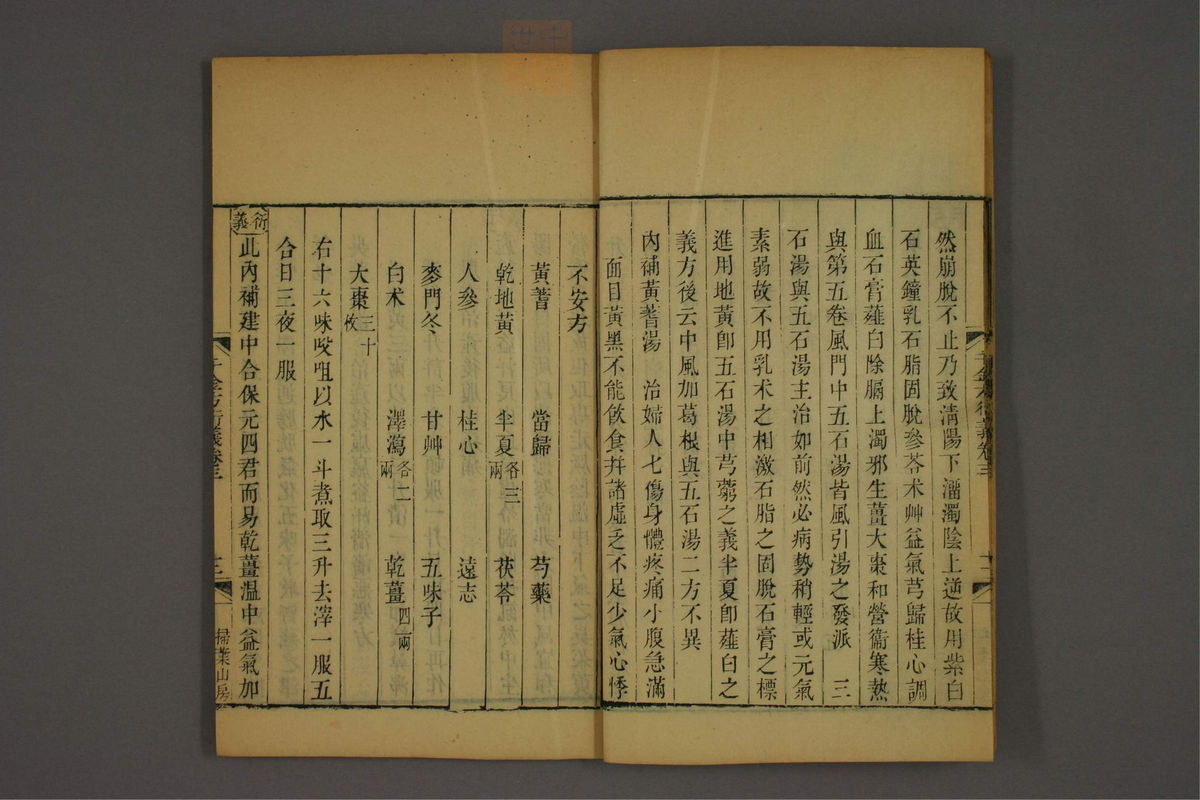 然崩脫不止乃致淸陽下溜濁陰上逆故用紫白
石英鐘乳石脂固脫參苓术艸益氣芎歸桂心調
血石膏薤白除膈上濁邪生薑大棗和營衞寒熱
與第五卷風門中五石湯皆風引湯之發派　三
石湯與五石湯主治如前然必病勢稍輕或元氣
素弱故不用乳术之相激石脂之固脫石膏之標
進用地黃卽五石湯中芎藭之義半夏卽薤白之
義方後云中風加葛根與五石湯二方不異
內補黃蓍湯　治婦人七傷身體疼痛小腹急滿
面目黃黑不能飮食幷諸虛乏不足少氣心悸
不安方
黃蓍　當歸　芍藥
乾地黃　半夏各三兩　茯苓
人參　桂心　遠志
麥門冬　甘艸　五味子
白术　澤瀉各二兩　乾薑四兩
大棗三十枚
右十六味㕮咀以水一斗煮取三升去滓一服五
合日三夜一服
衍義 此內補建中合保元四君而易乾薑溫中益氣加
千金方衍義卷三
掃葉山房